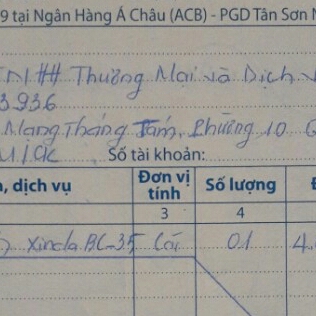 9 tại Ngân Hàng Á Châu (ACB) - PGD Tân Sơn
TNHH Thương Mại và Dịch
3936
Mạng Tháng Tám, Phường 10
Số tài khoản:
, dịch vụ Đơn vị tính Số lượng
3 4
Xinda BC-35 Cái 01